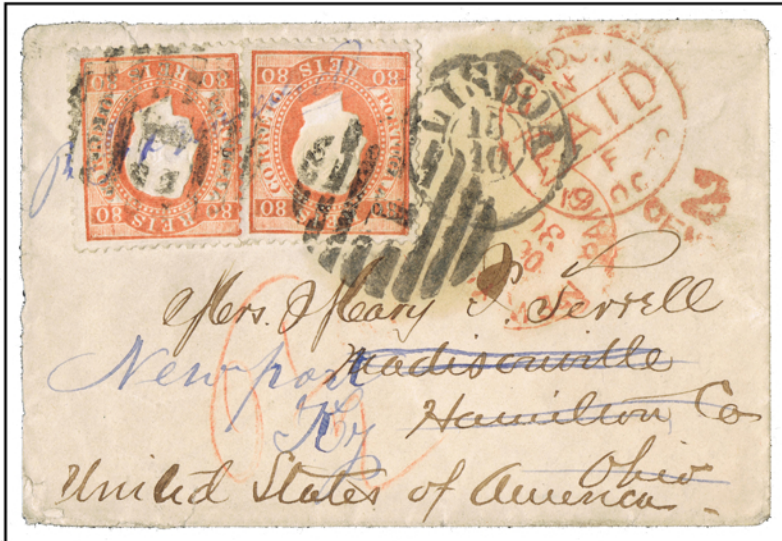 80 REIS 80
PORTUGAL
CORREIO
80 REIS 80
80 REIS 80
PORTUGAL
CORREIO
80 REIS 80
LISBOA
15
10
PAID
2
CENTS
Mrs. Mary P. Terrell
Madisonville
Newport
Hamilton Co
Ky
Ohio
United States of America